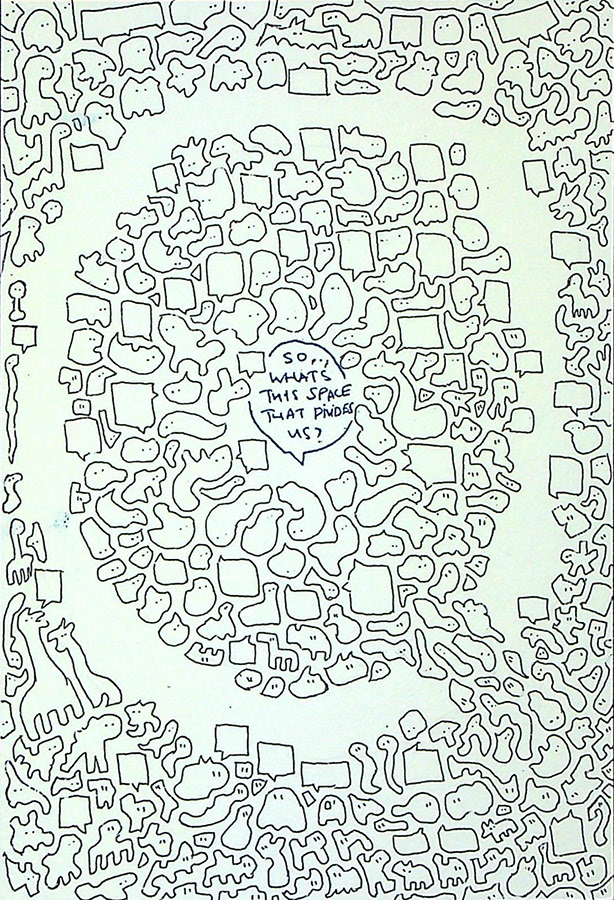 SO...
WHATS
THIS SPACE
THAT DIVIDES
US?